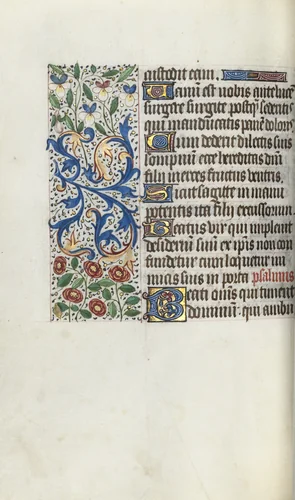 custodit eam.
Vanum est vobis ante lucem
surgere surgite postquam sederitis
qui manducatis panem doloris
Cum dederit dilectis suis
sompnum ecce hereditas domini
filii merces fructus ventris.
Sicut sagitte in manu
potentis ita filii excussorum.
Beatus vir qui implevit
desiderium suum ex ipsis non con
fundetur cum loquetur ini
micis suis in porta psalmus
Beati omnes qui timent
dominum. qui ambu